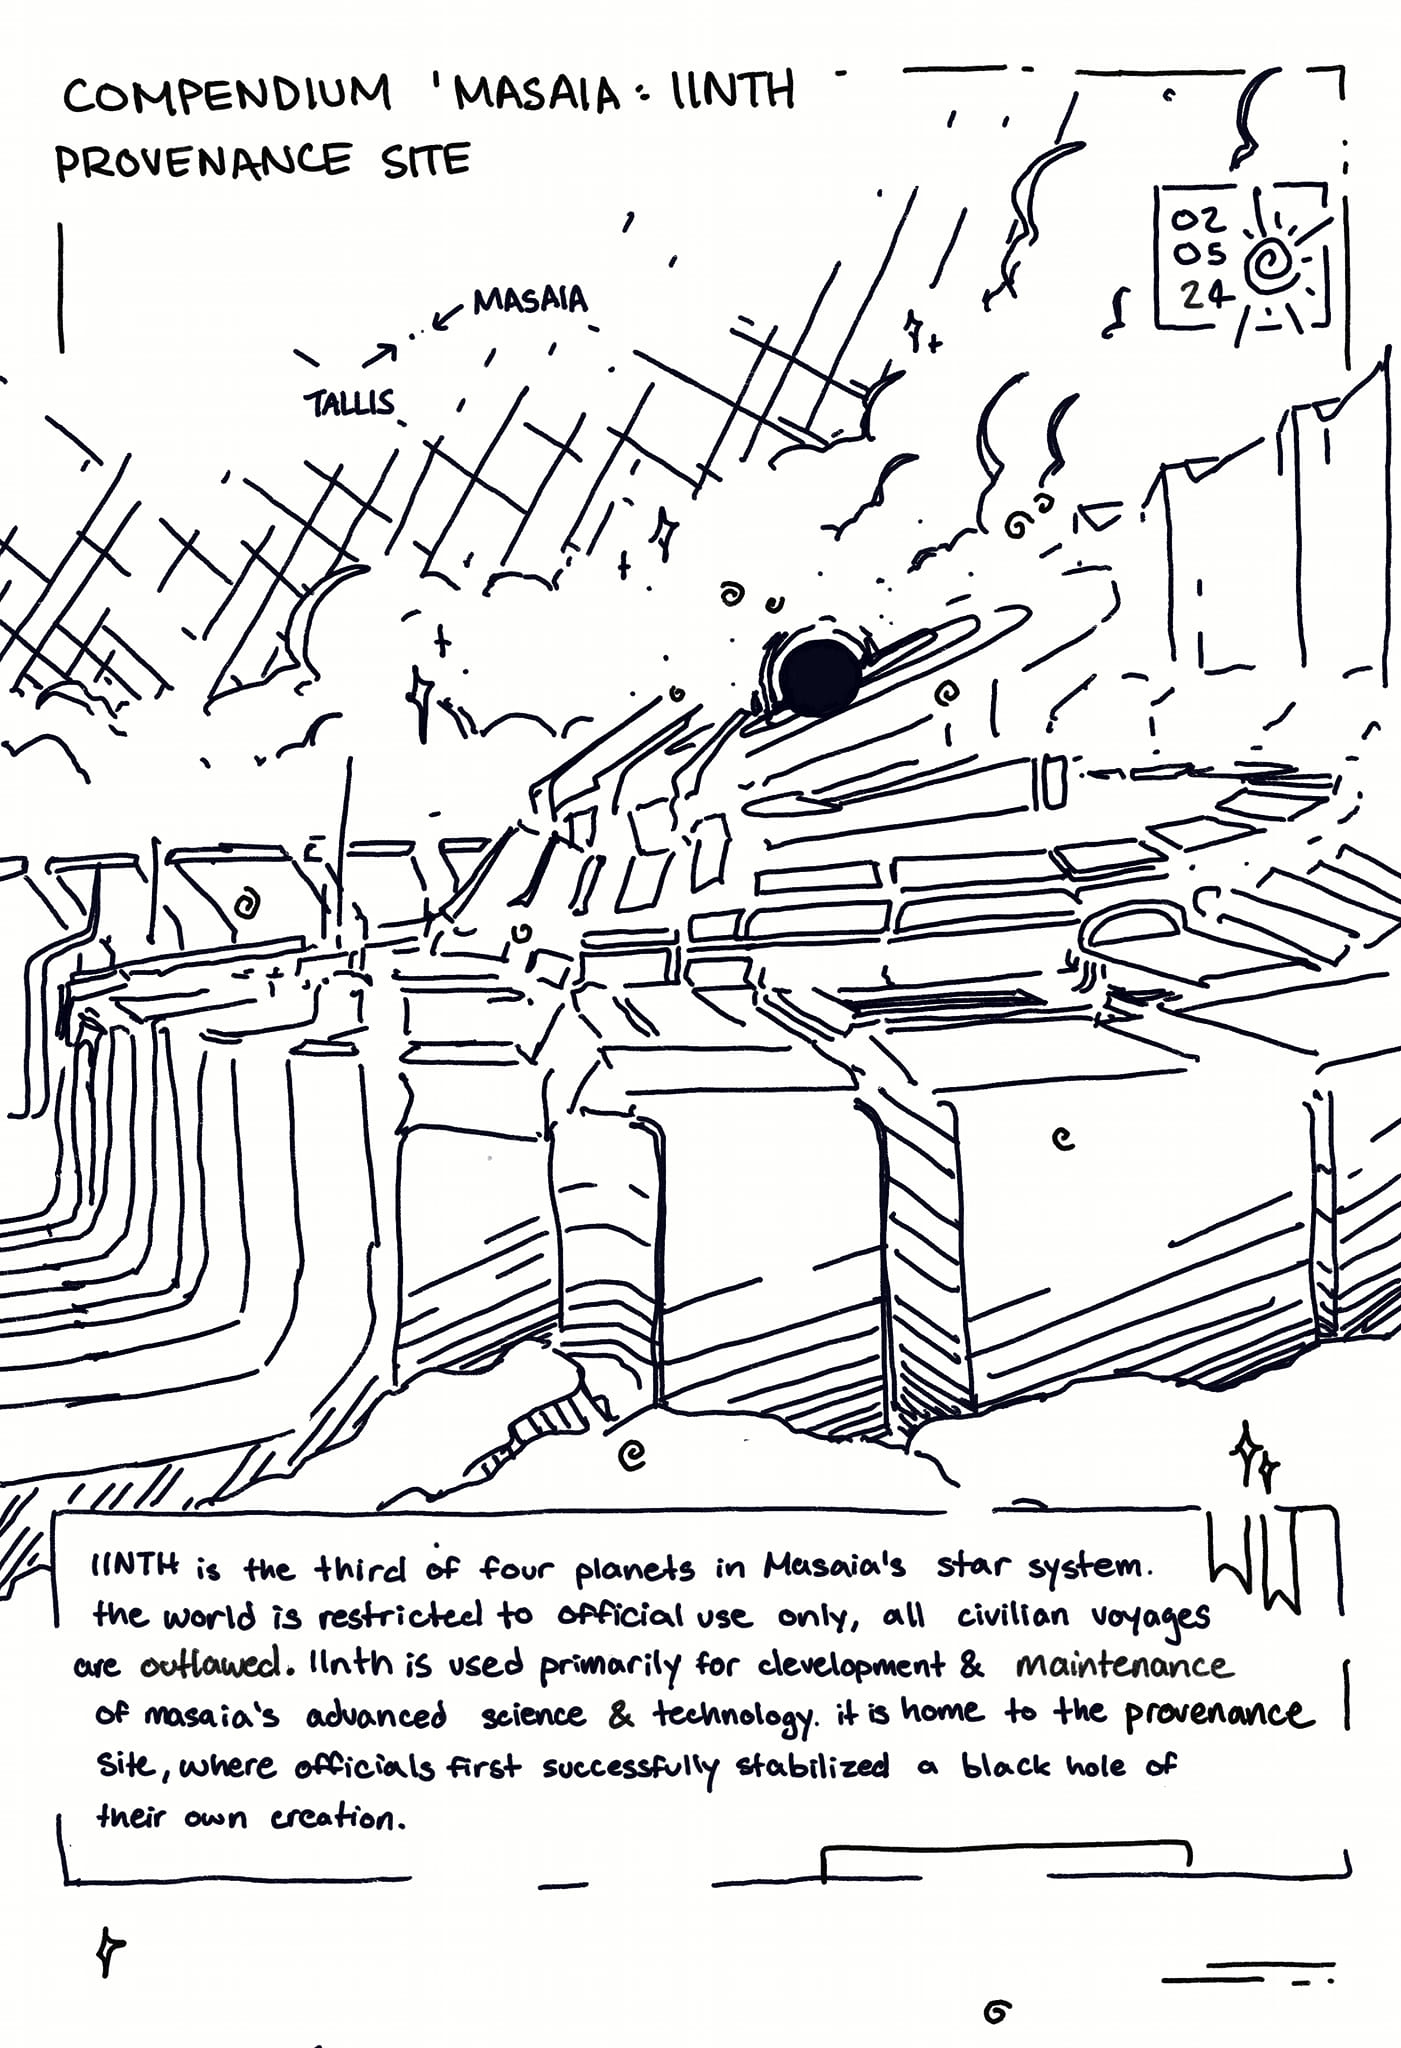 COMPENDIUM 'MASAIA: IINTH
PROVENANCE SITE
02
05
24
MASAIA
TALLIS
IINTH is the third of four planets in Masaia's star system.
the world is restricted to official use only, all civilian voyages
are outlawed. IInth is used primarily for development & maintenance
of masaia's advanced science & technology. it is home to the provenance
site, where officials first successfully stabilized a black hole of
their own creation.